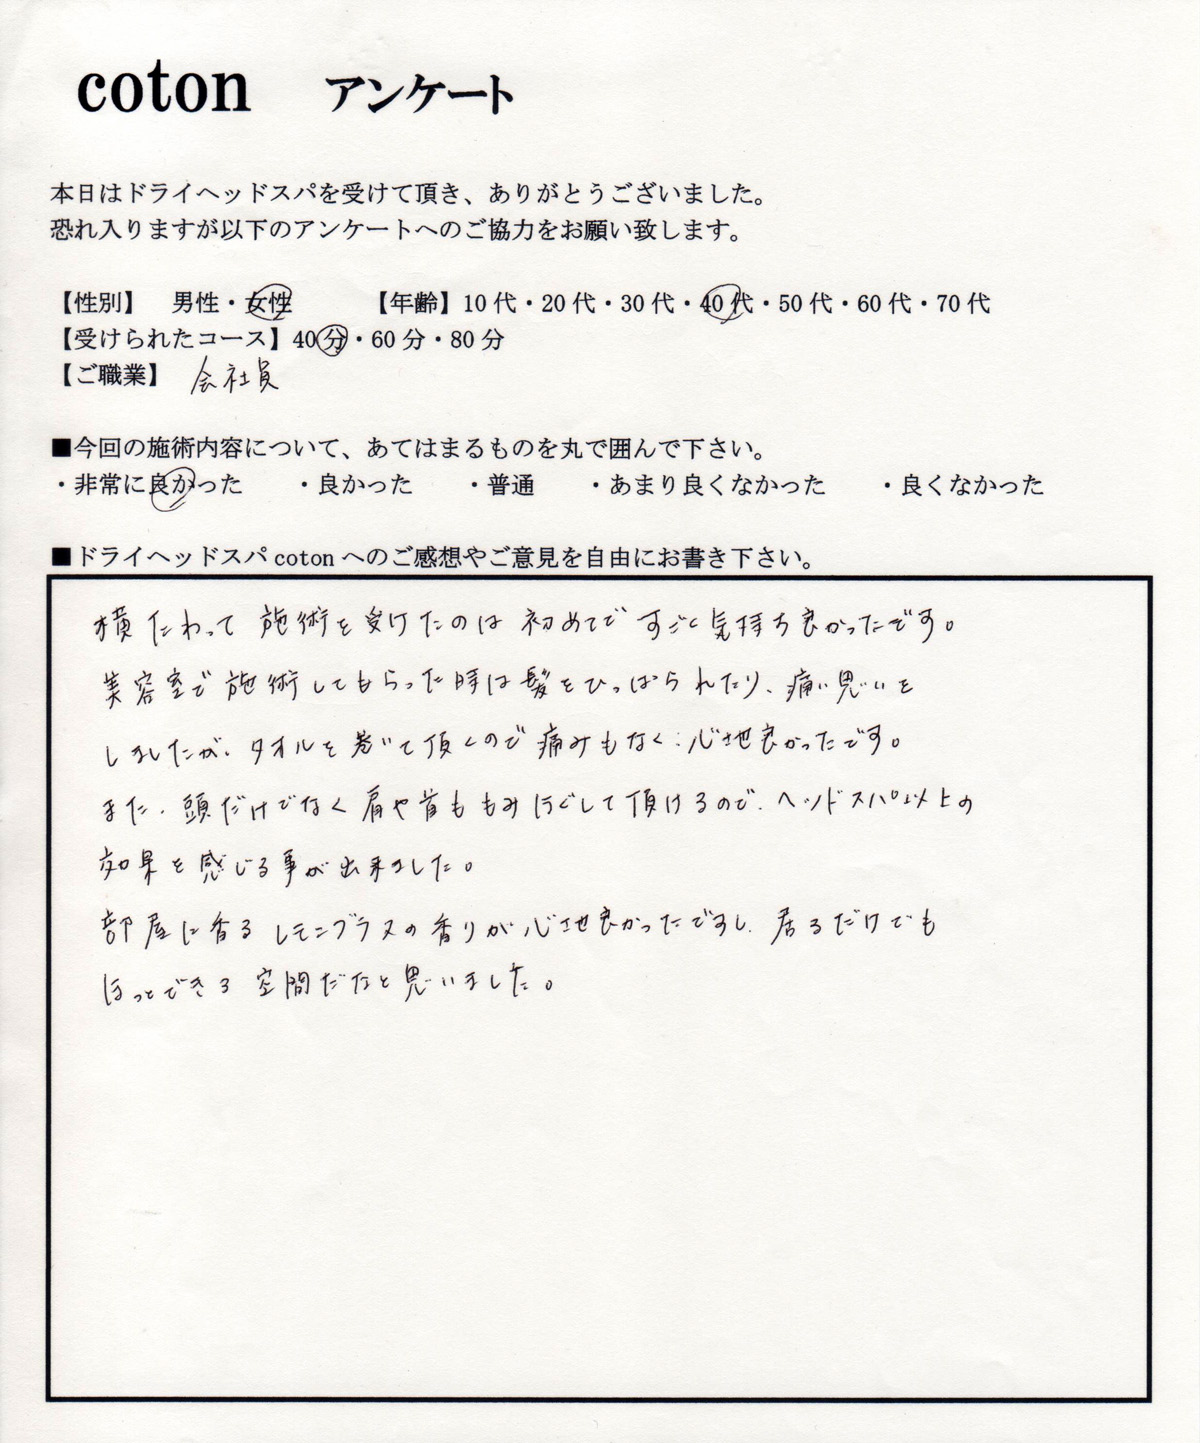 coton アンケート
本日はドライヘッドスパを受けて頂き、ありがとうございました。
恐れ入りますが以下のアンケートへのご協力をお願い致します。
【性別】 男性・女性 【年齢】10代・20代・30代・40代・50代・60代・70代
【受けられたコース】40分・60分・80分
【ご職業】 会社員
■今回の施術内容について、あてはまるものを丸で囲んで下さい。
・非常に良かった ・良かった ・普通 ・あまり良くなかった ・良くなかった
■ドライヘッドスパcotonへのご感想やご意見を自由にお書き下さい。
横たわって施術を受けたのは初めてですごく気持ち良かったです。
美容室で施術してもらった時は髪をひっぱられたり、痛い思いを
しましたが、タオルを巻いて頂くので痛みもなく、心地良かったです。
また、頭だけでなく肩や首ももみほぐして頂けるので、ヘッドスパ以上の
効果を感じる事が出来ました。
部屋に香るレモングラスの香りが心地良かったですし、居るだけでも
ほっとできる空間だなと思いました。